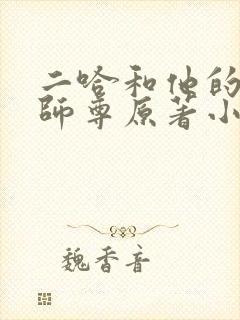 二哈和他的
師尊原著小
魏香音